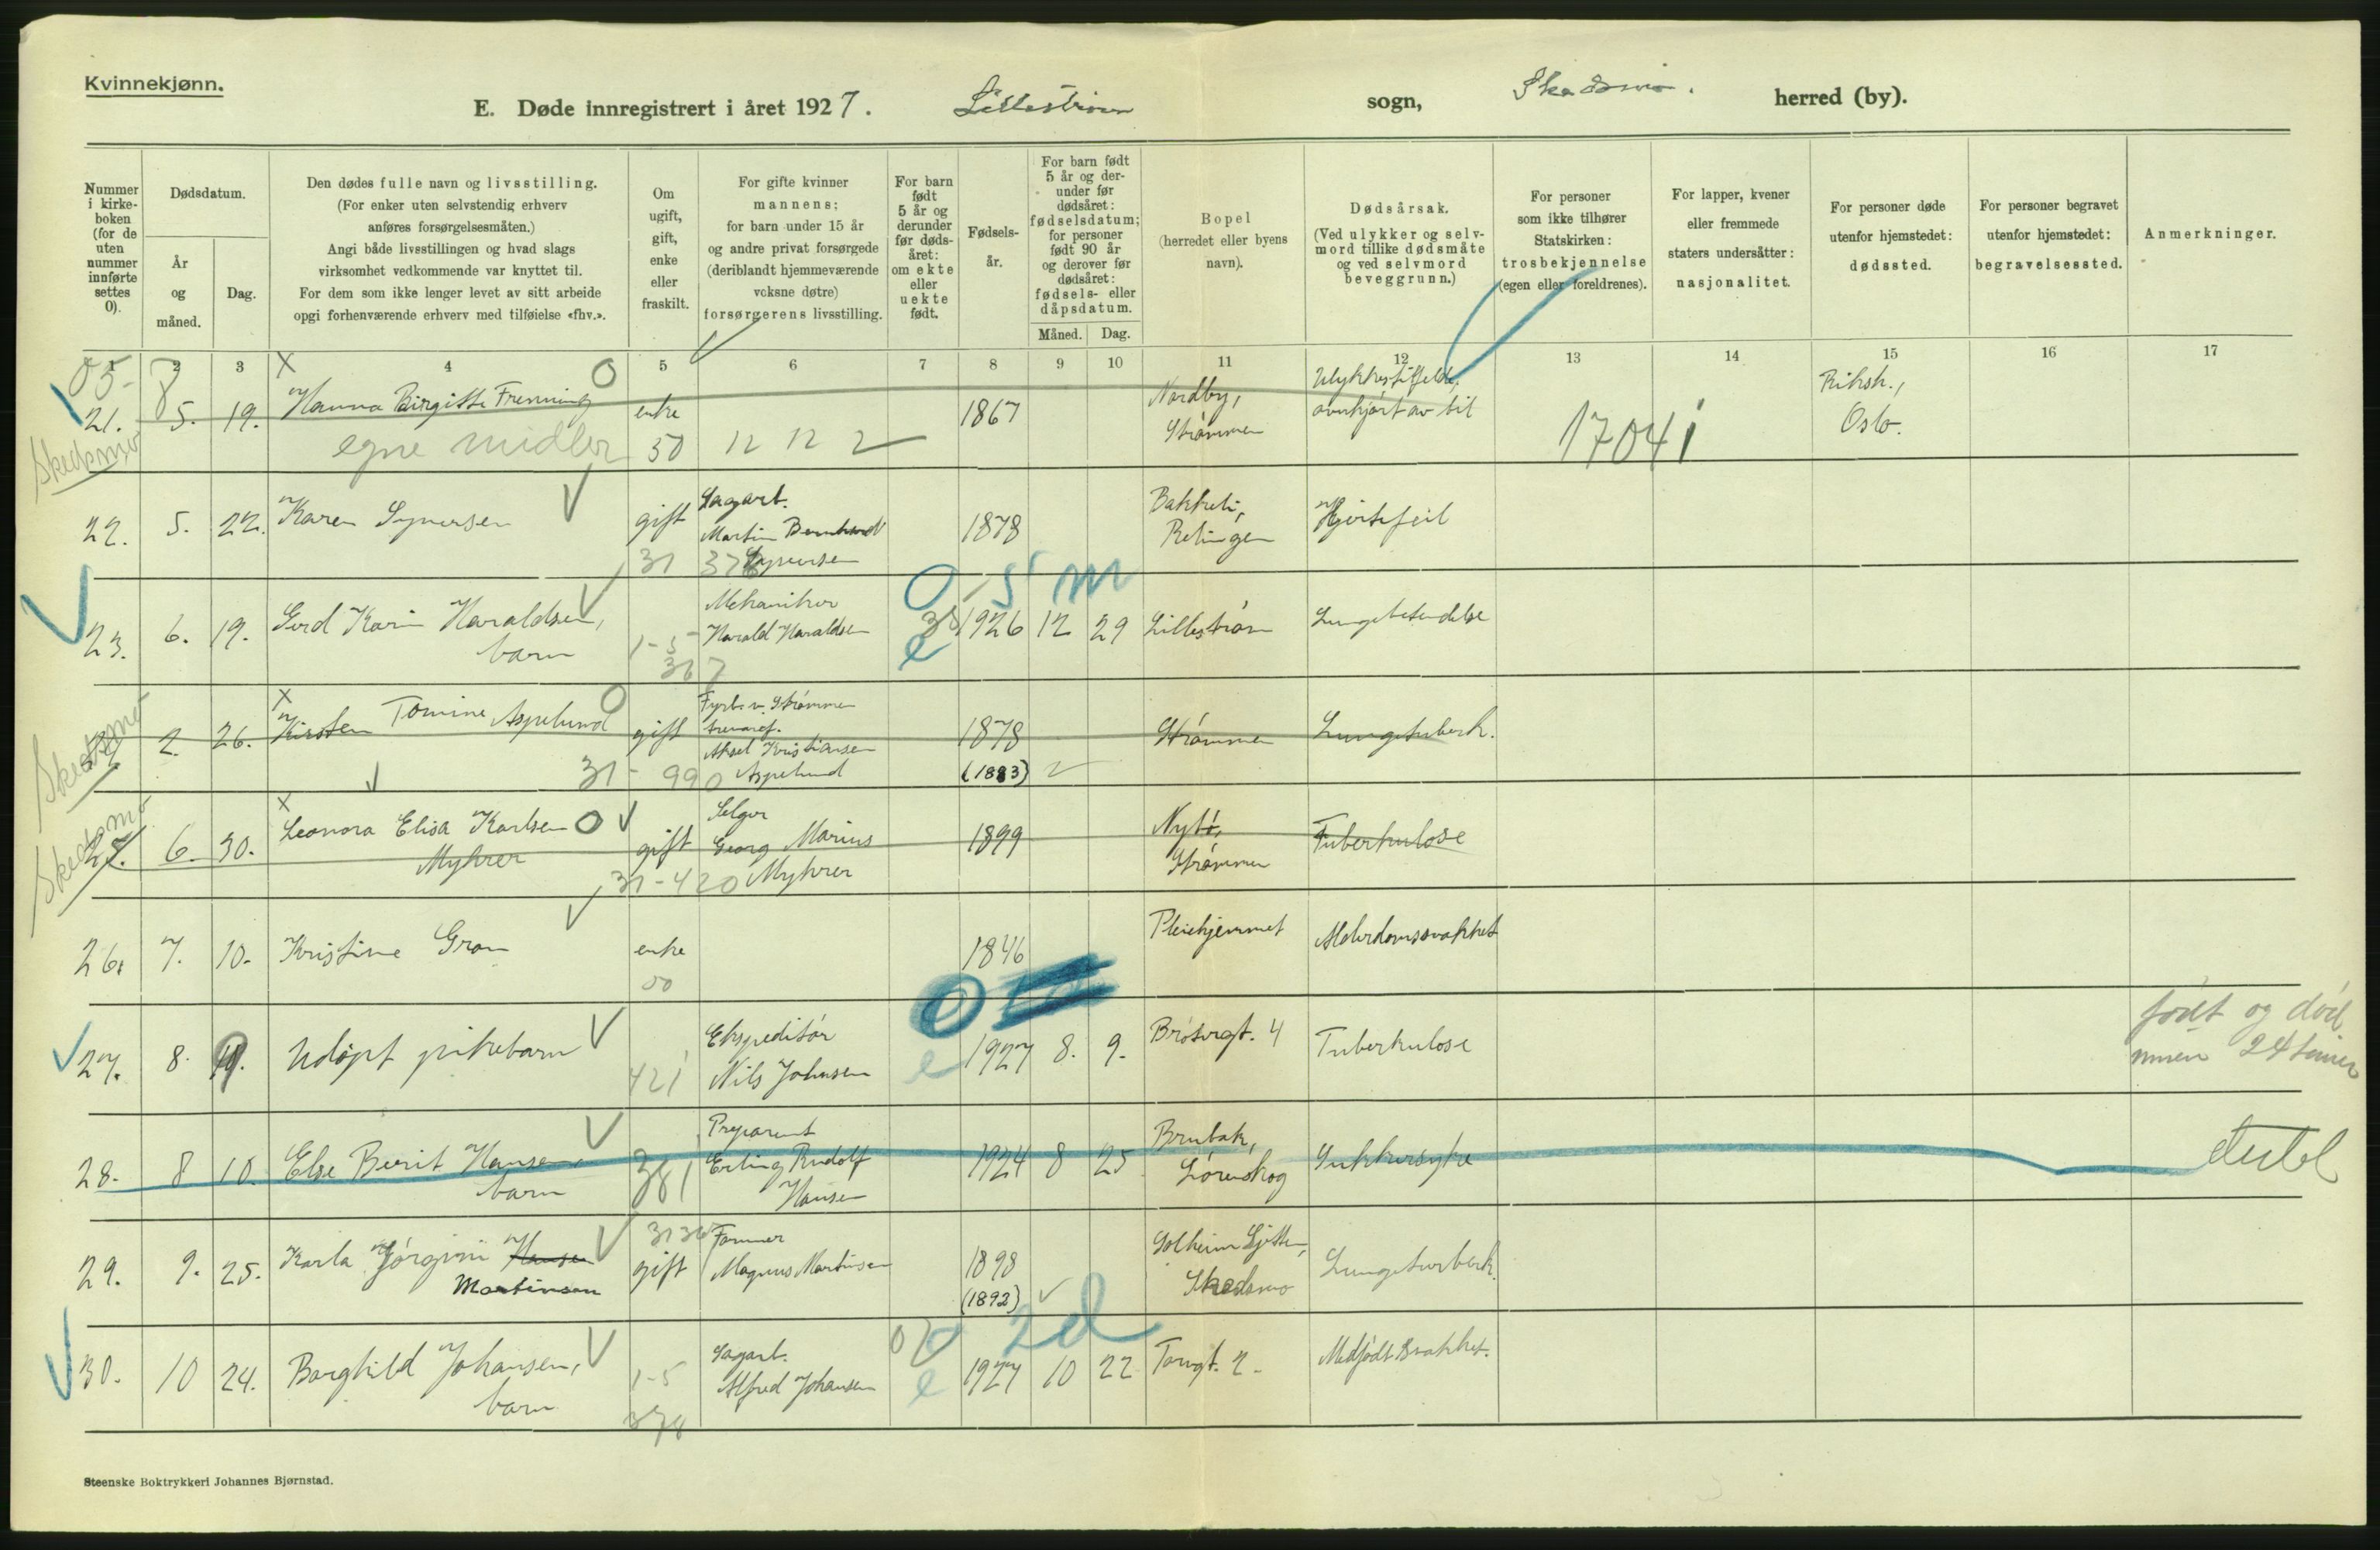 Kvinnekjønn.
E. Døde innregistrert i året 1927. Lillestrøm sogn, Skedsmo. herred (by).
Nummer i kirkeboken (for de uten nummer innførte settes 0).
Dødsdatum.
År og måned.
Dag.
Den dødes fulle navn og livsstilling.
(For enker uten selvstendig erhverv
anføres forsørgelsesmåten.)
Angi både livsstillingen og hvad slags
virksomhet vedkommende var knyttet til.
For dem som ikke lenger levet av sitt arbeide
opgi forhenværende erhverv med tilføielse «fhv.».
Om ugift, gift, enke eller fraskilt.
For gifte kvinner
mannens;
for barn under 15 år
og andre privat forsørgede
(deriblandt hjemmeværende
voksne døtre)
forsørgerens livsstilling.
For barn født 5 år og derunder før dødsåret: om ekte eller uekte født.
Fødselsår.
For barn født 5 år og derunder før dødsåret: fødselsdatum; for personer født 90 år og derover før dødsåret: fødsels- eller dåpsdatum.
Måned. Dag.
Bopel
(herredet eller byens
navn).
Dødsårsak.
(Ved ulykker og selvmord tillike dødsmåte og ved selvmord beveggrunn.)
For personer
som ikke tilhører
Statskirken:
trosbekjennelse
(egen eller foreldrenes).
For lapper, kvener
eller fremmede
staters undersåtter:
nasjonalitet.
For personer døde
utenfor hjemstedet:
dødssted.
For personer begravet
utenfor hjemstedet:
begravelsessted.
Anmerkninger.
1 2 3 4 5 6 7 8 9 10 11 12 13 14 15 16 17
05- 8 X O
21. 5. 19. Hanna Birgitte Frenning enke 1867 Nordby, Strømmen Ulykkestilfelle, overkjørt av bil Riksh., Oslo.
Skedsmo egne midler 50 12 12 2 17041
22. 5. 22. Karen Syversen gift Sagarb. Martin Bernhard Syversen 1878 Bakkeli, Relingen Hjertefeil
31 378
0 - 5 m
23. 6. 19. Gerd Karin Haraldsen, barn Mekaniker Harald Haraldsen e 1926 12 29 Lillestrøm Lungebetendelse
1-5 367
Skedsmo X O
2. 26. Kirsten Tomine Aspelund gift Fyrb. v. Strømmen trevaref. Aksel Kristiansen Aspelund 1878 (1883) Strømmen Lungetuberk.
31 - 990
Skedsmo X O
25. 6. 30. Leonora Elisa Karlsen Myhrer gift Selger Georg Marius Myhrer 1899 Nybø, Strømmen Tuberkulose
31-420
26. 7. 10. Kristine Gran enke 1846 Pleiehjemmet Alderdomssvakhet
00
0
27. 8. 9. Udøpt pikebarn Ekspeditør Nils Johnsen e 1927 8. 9. Brøtergt. 4 Tuberkulose født og død innen 24 timer
421
28. 8 10. Else Berit Hansen, barn Preparant Erling Rudolf Hansen 1924 8 25 Brubak, Lørenskog Sukkersyke dubl
381
29. 9. 25. Karla Jørgine Hansen Martinsen gift Former Magnus Martinsen 1898 (1892) Solheim Skjetten, Skedsmo Lungetuberk.
2d
30. 10 24. Borghild Johansen, barn Sagarb. Alfred Johansen e 1927 10 22 Torvgt. 2. Medfødt svakhet.
1-5 378
Steenske Boktrykkeri Johannes Bjørnstad.